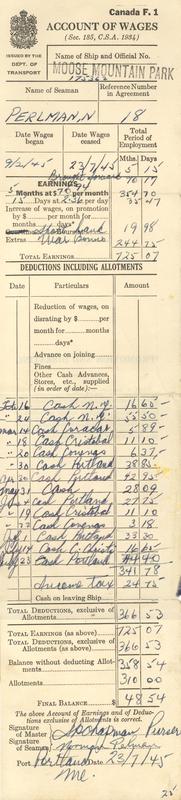 Canada F. 1
ACCOUNT OF WAGES
(Sec. 185, C.S.A. 1934)
ISSUED BY THE
DEPT. OF
TRANSPORT
Name of Ship and Official No.
MOOSE MOUNTAIN PARK
Name of Seaman
Reference Number
in Agreement
PERLMAN, N
18
Date Wages
began
Date Wages
ceased
Total
Period of
Employment
9/2/45
23/7/45
Mths. Days
5 15
Brought forward
EARNINGS
5 Months at $
354 70
15 Days at 2.36 per day
35 47
Increase of wages, on promotion
by $ per month for
months days*
19 98
Extras War Bonus
244 75
TOTAL EARNINGS
725 07
DEDUCTIONS INCLUDING ALLOTMENTS
Date Particulars Amount
Reduction of wages, on
disrating by $ per
month for months
days*
Advance on joining
Fines
Other Cash Advances,
Stores, etc., supplied
(in order of date):
Feb 16 Cash N.Y. 16 65
24 Cash 5 50
18 Cash Cristobal 11 10
30 Cash Portland 38 85
30 Cash Portland
31 Cash 28 09
Cash Portland 27 75
19 Cash Cristobal 11 10
3 18
Cash Portland 33 30
14 Cash C. Christi 16 65
23 Cash Portland 4 40
341 78
Income Tax 24 75
Cash on leaving Ship
TOTAL DEDUCTIONS, exclusive of
Allotments
366 53
TOTAL EARNINGS (as above)
725 07
TOTAL DEDUCTIONS, exclusive of
Allotments (as above)
366 53
Balance without deducting Allotments
358 54
Allotments
310 00
FINAL BALANCE $
48 54
The above Account of Earnings and of Deductions
exclusive of Allotments is correct.
Signature
of Master
Chapman, Purser
Signature
of Seaman
Norman Perlman
Port Portland Date 23/7/45
Me.
25